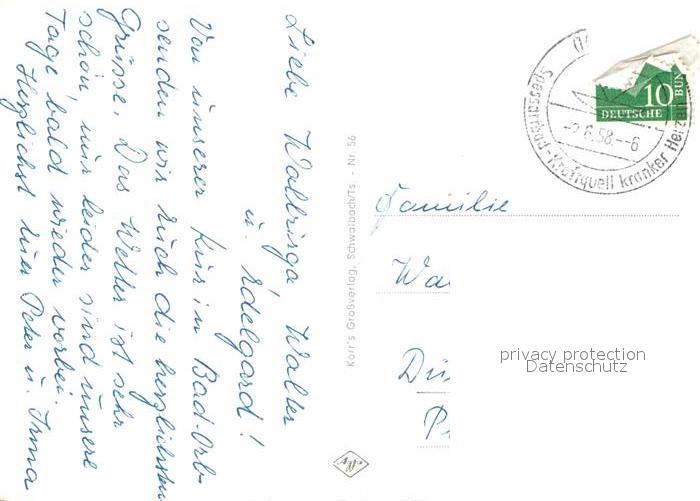 Liebe Walburga Walter
u. Edelgard!
Von unserer Kur in Bad-Orb
senden wir Euch die herzlichsten
Grüsse. Das Wetter ist sehr
schön, nur leider sind unsere
Tage bald wieder vorbei.
Herzlichst Eure Peter u. Irma
Korr's Großverlag, Schwalbach/Ts. - Nr 56
Agfa
Spessartbad-Kraftquell kranker Herzen
-2.6.58.--6
10
DEUTSCHE
BUN
Familie
Wa
Dü
P
privacy protection
Datenschutz